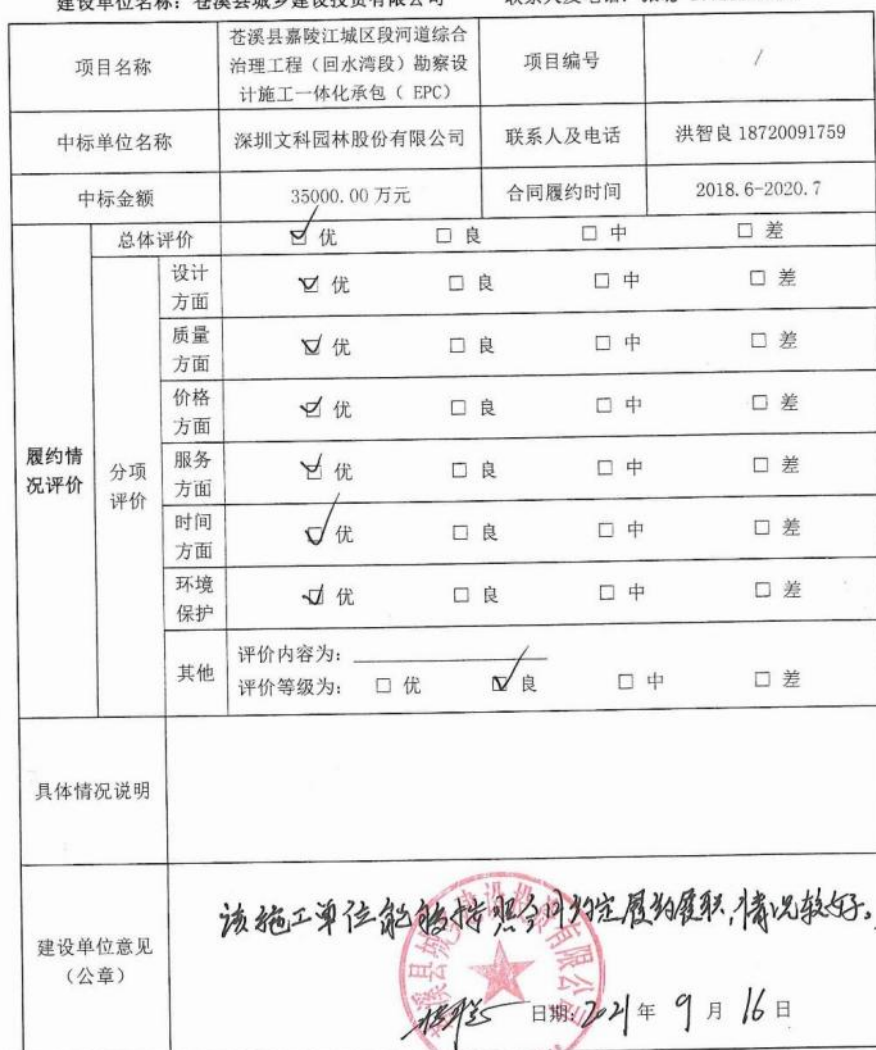 建设单位名称：苍溪县城乡建设投资有限公司 联系人及电话：
项目名称 苍溪县嘉陵江城区段河道综合治理工程（回水湾段）勘察设计施工一体化承包（ EPC） 项目编号 /
中标单位名称 深圳文科园林股份有限公司 联系人及电话 洪智良 18720091759
中标金额 35000.00 万元 合同履约时间 2018.6-2020.7
履约情况评价
总体评价 ☑ 优 □ 良 □ 中 □ 差
分项评价
设计方面 ☑ 优 □ 良 □ 中 □ 差
质量方面 ☑ 优 □ 良 □ 中 □ 差
价格方面 ☑ 优 □ 良 □ 中 □ 差
服务方面 ☑ 优 □ 良 □ 中 □ 差
时间方面 ☑ 优 □ 良 □ 中 □ 差
环境保护 ☑ 优 □ 良 □ 中 □ 差
其他 评价内容为：
评价等级为： □ 优 ☑ 良 □ 中 □ 差
具体情况说明
建设单位意见（公章）
该施工单位能够按照合同约定履约履职，情况较好。
苍溪县城乡建设投资有限公司
日期：2021 年 9 月 16 日